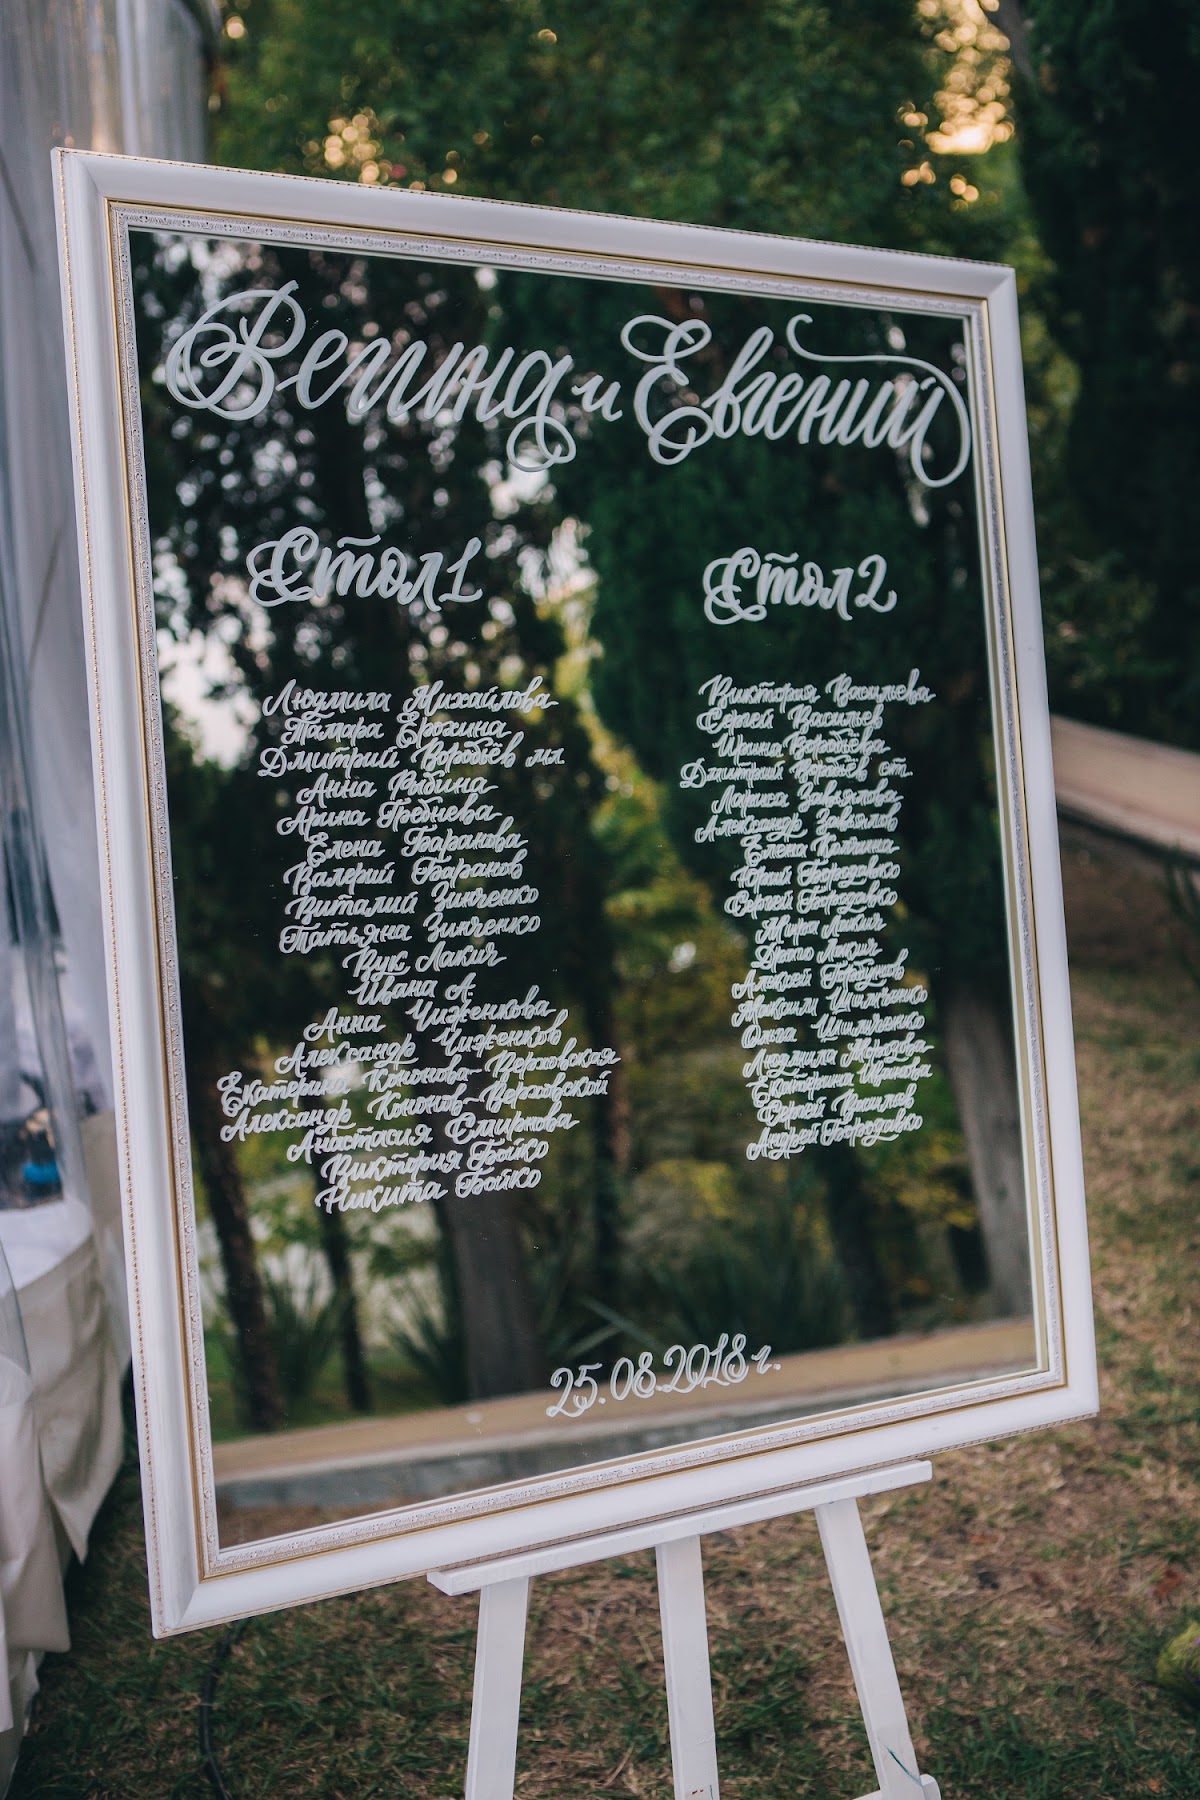 Регина и Евгений
Стол 1
Людмила Михайлова
Тамара Ерохина
Дмитрий Воробьёв мл.
Анна Рыбина
Арина Гребнева
Елена Баранова
Валерий Баранов
Виталий Зинченко
Татьяна Зинченко
Вук Лакич
Ивана А.
Анна Чиженкова
Александр Чиженков
Екатерина Кононова-Верховская
Александр Кононов-Верховской
Анастасия Смирнова
Виктория Бойко
Никита Бойко
Стол 2
Виктория Васильева
Сергей Васильев
Ирина Воробьёва
Дмитрий Воробьёв ст.
Лариса Завьялова
Александр Завьялов
Елена
Юрий Бородавко
Сергей Бородавко
Мира Лакич
Лакич
Алексей Горбунов
Максим
Ольга
Людмила Морозова
Екатерина Иванова
Сергей
Андрей Бородавко
25.08.2018г.